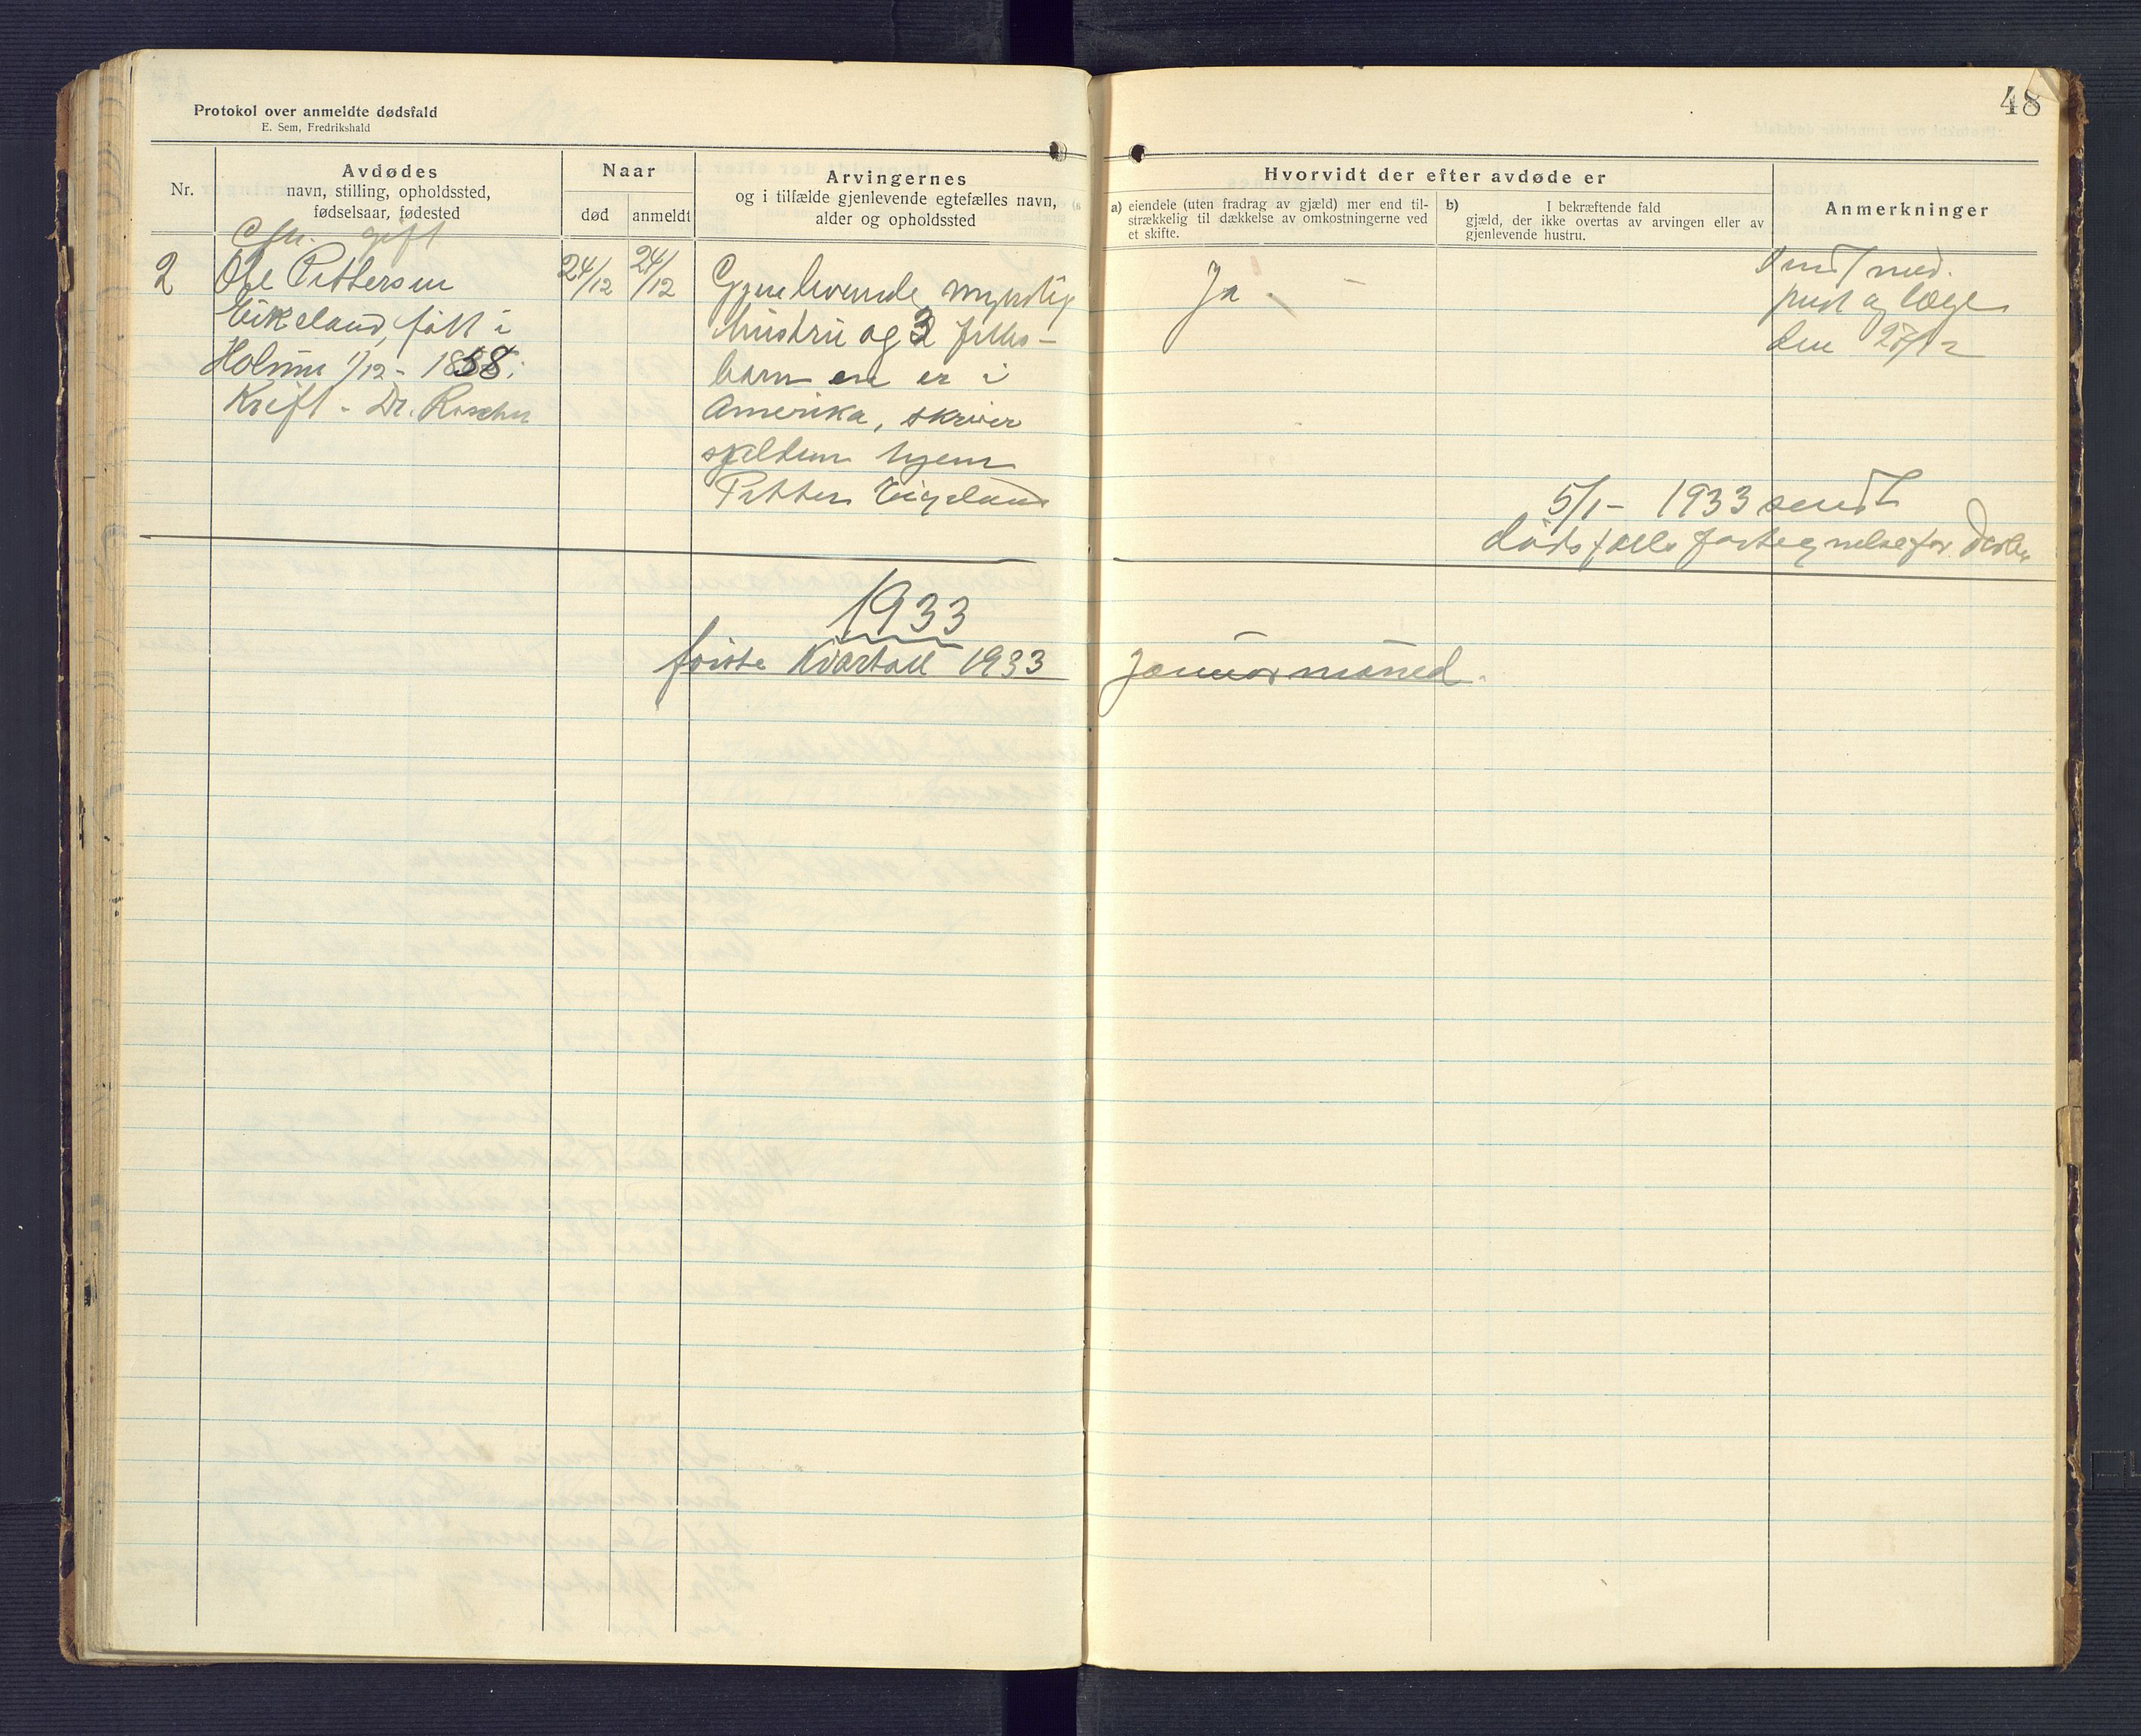 48
Protokol over anmeldte dødsfald
E. Sem, Fredrikshald
Nr.
Avdødes
navn, stilling, opholdssted,
fødselsaar, fødested
Naar
død
anmeldt
Arvingernes
og i tilfælde gjenlevende egtefælles navn,
alder og opholdssted
Hvorvidt der efter avdøde er
a) eiendele (uten fradrag av gjæld) mer end til-
strækkelig til dækkelse av omkostningerne ved
et skifte.
b) I bekræftende fald
gjæld, der ikke overtas av arvingen eller av
gjenlevende hustru.
Anmerkninger
gift
2
Ole Pettersen
Eikeland, født i
Holum 1/12 - 1858;
Kreft - Dr.
24/12
24/12
Gjenlevende myndig
hustru og 3 felles-
barn en er i
Amerika, skriver
sjeldum hjem
Petter Eigeland
Ja
Sendt med.
prest og læge
den 27/12
5/1 - 1933 sendt
dødsfalls fortegnelse for Desbr
1933
første Kvartall 1933
Januar måned.